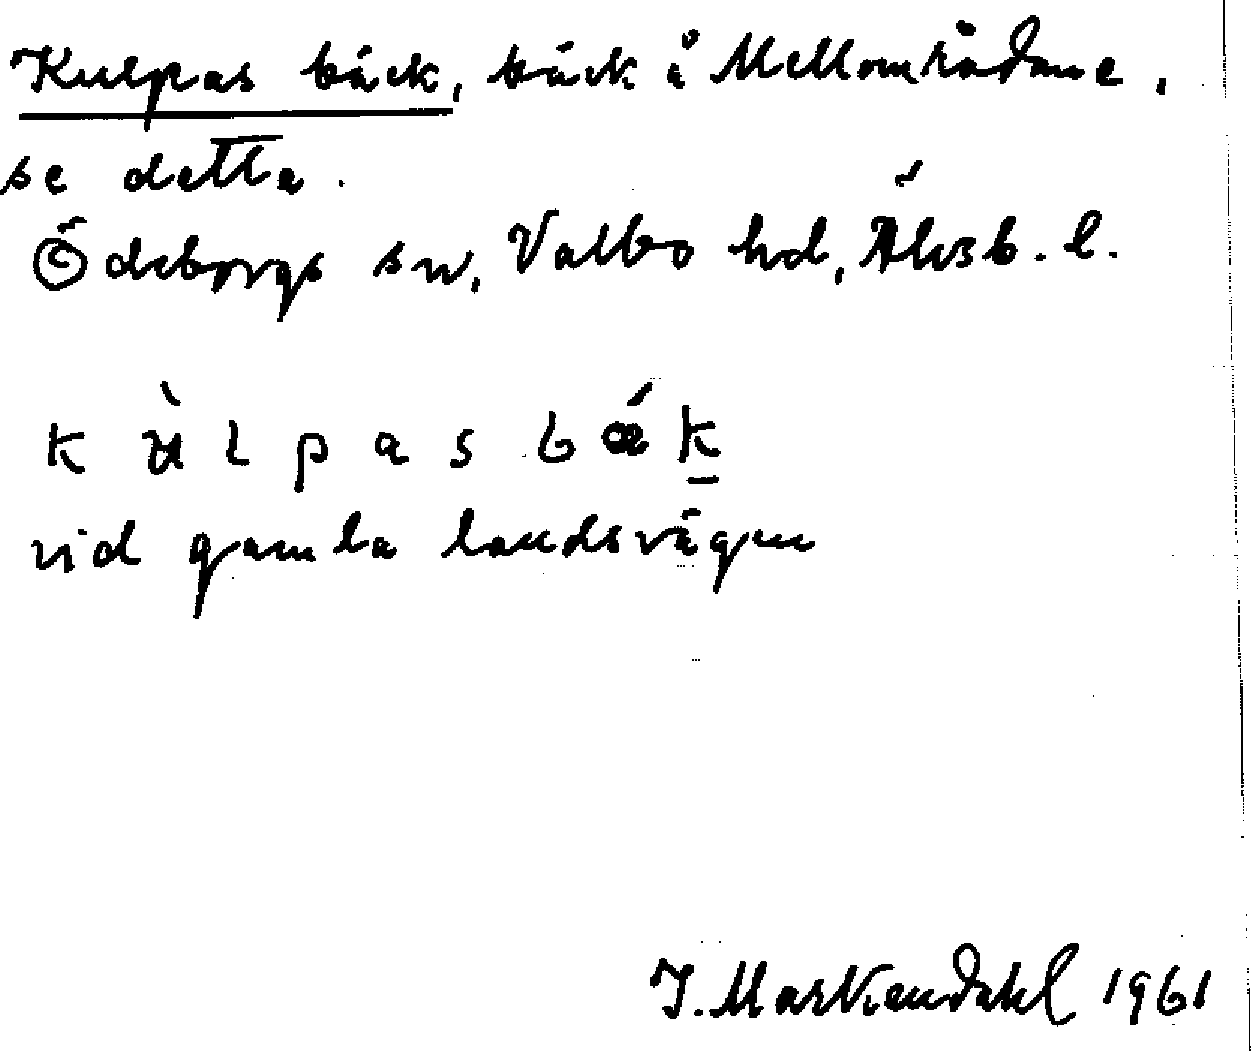 Kulpas bäck, bäck å Mellområdane,
se detta.
Ödeborgs sn, Valbo hd, Älvsb. l.
kùlpasbǽk
vid gamla landsvägen
J. Markendahl 1961